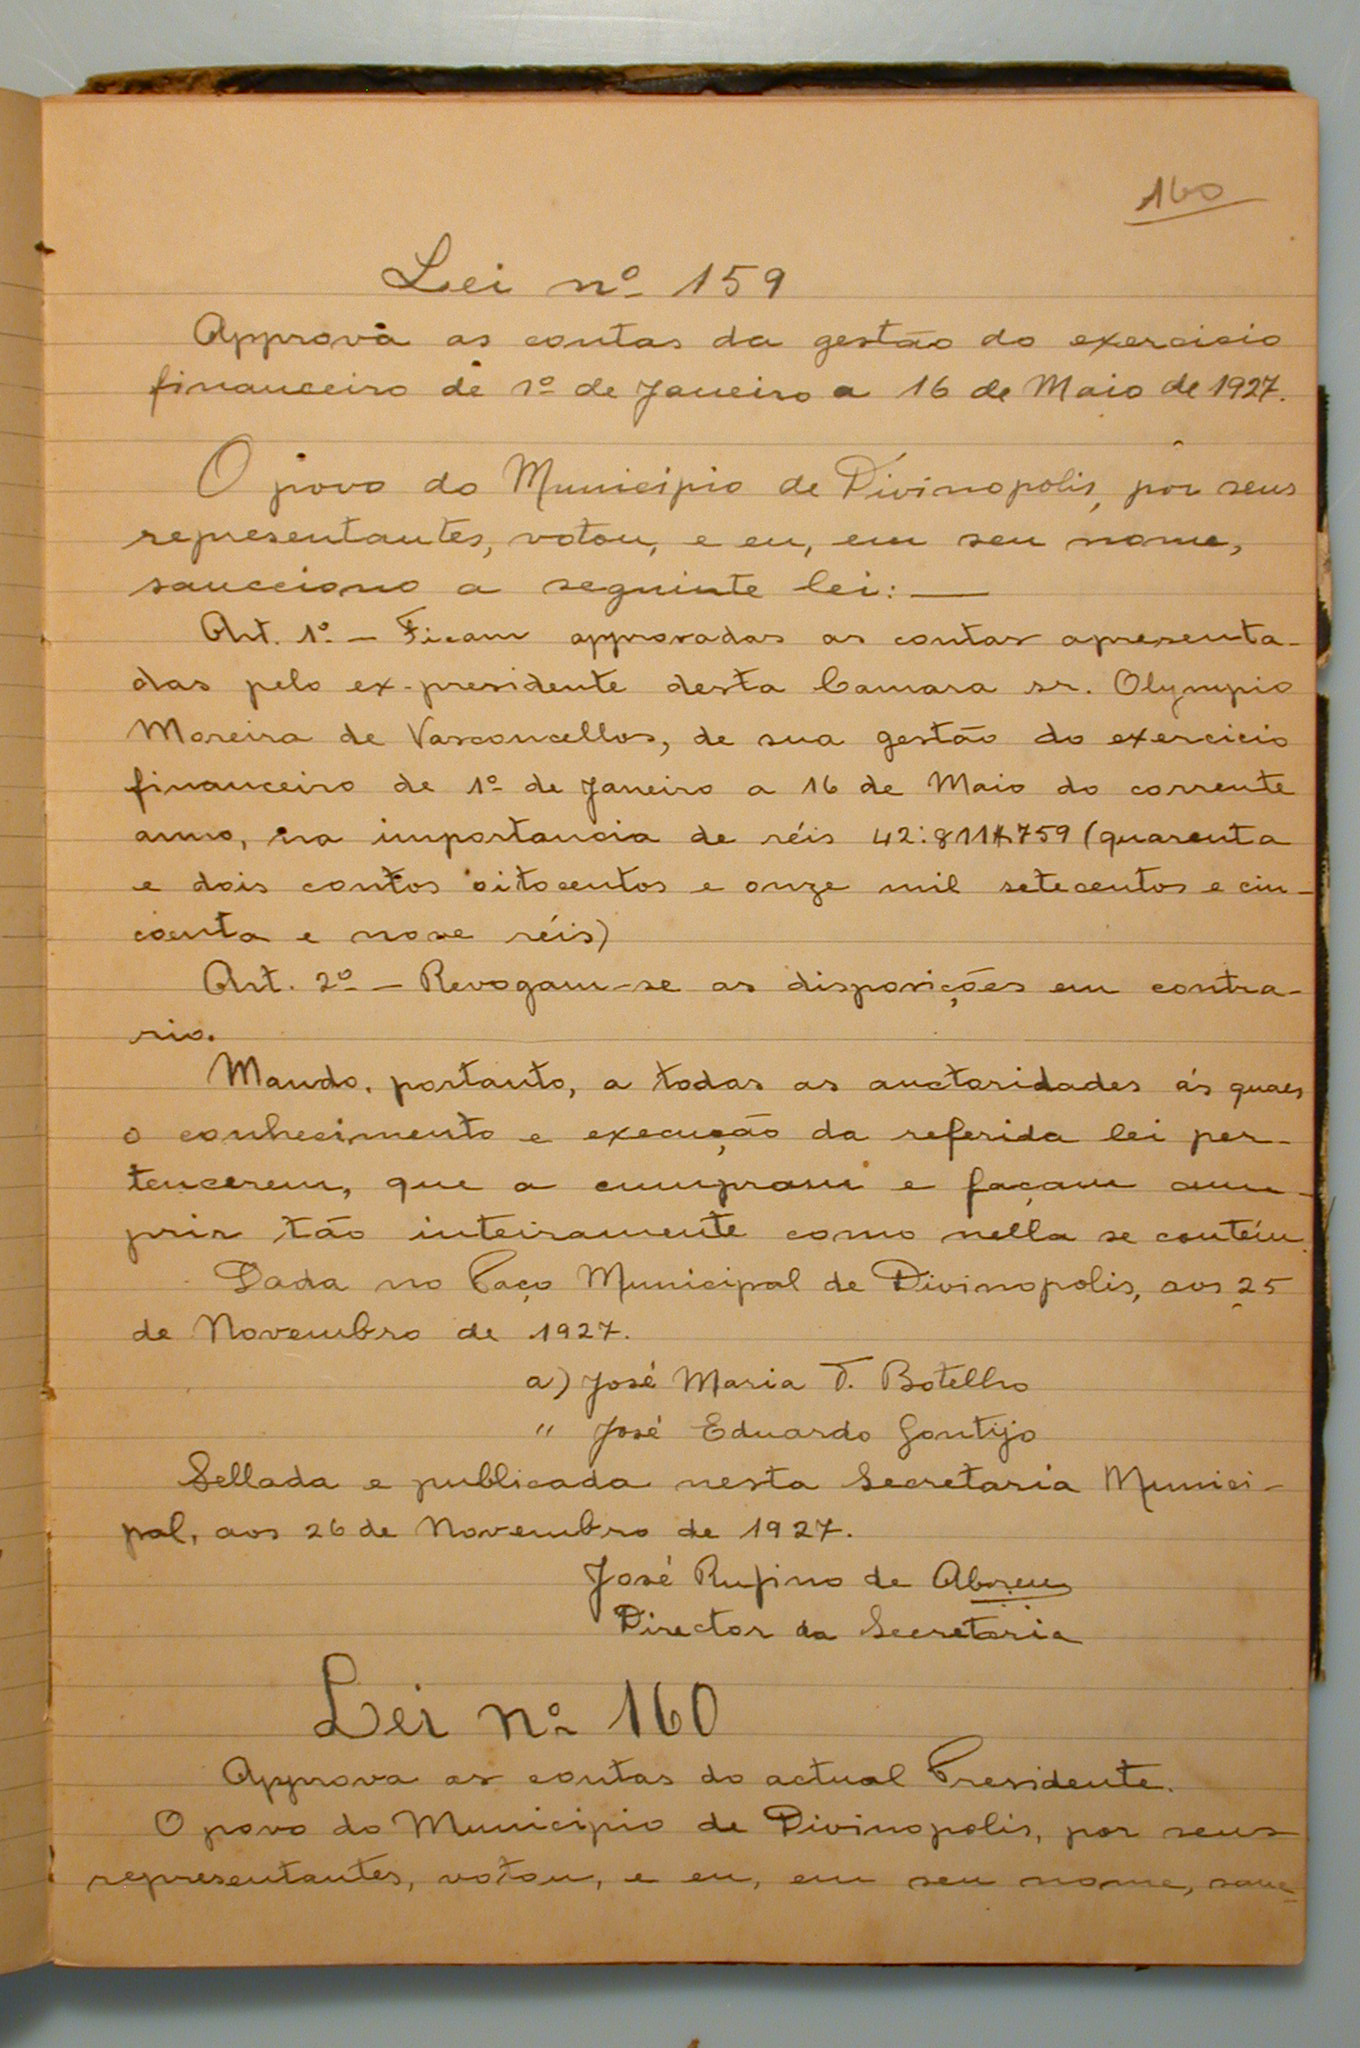 160
Lei nº 159
Approva as contas da gestão do exercicio
financeiro de 1º de Janeiro a 16 de Maio de 1927.
O povo do Municipio de Divinopolis, por seus
representantes, votou, e eu, em seu nome,
sancciono a seguinte lei: —
Art. 1º - Ficam approvadas as contas apresenta-
das pelo ex-presidente desta Camara sr. Olympio
Moreira de Vasconcellos, de sua gestão do exercicio
financeiro de 1º de Janeiro a 16 de Maio do corrente
anno, na importancia de réis 42:811$759 (quarenta
e dois contos oitocentos e onze mil setecentos e cin-
coenta e nove réis)
Art. 2º - Revogam-se as disposições em contra-
rio.
Mando, portanto, a todas as auctoridades ás quaes
o conhecimento e execução da referida lei per-
tencerem, que a cumpram e façam cum-
prir tão inteiramente como nella se contém.
Dada no Paço Municipal de Divinopolis, aos 25
de Novembro de 1927.
a) José Maria T. Botelho
" José Eduardo Gontijo
Sellada e publicada nesta Secretaria Munici-
pal, aos 26 de Novembro de 1927.
José Rufino de Abreu
Director da Secretaria
Lei nº 160
Approva as contas do actual Presidente.
O povo do Municipio de Divinopolis, por seus
representantes, votou, e eu, em seu nome, sanc-